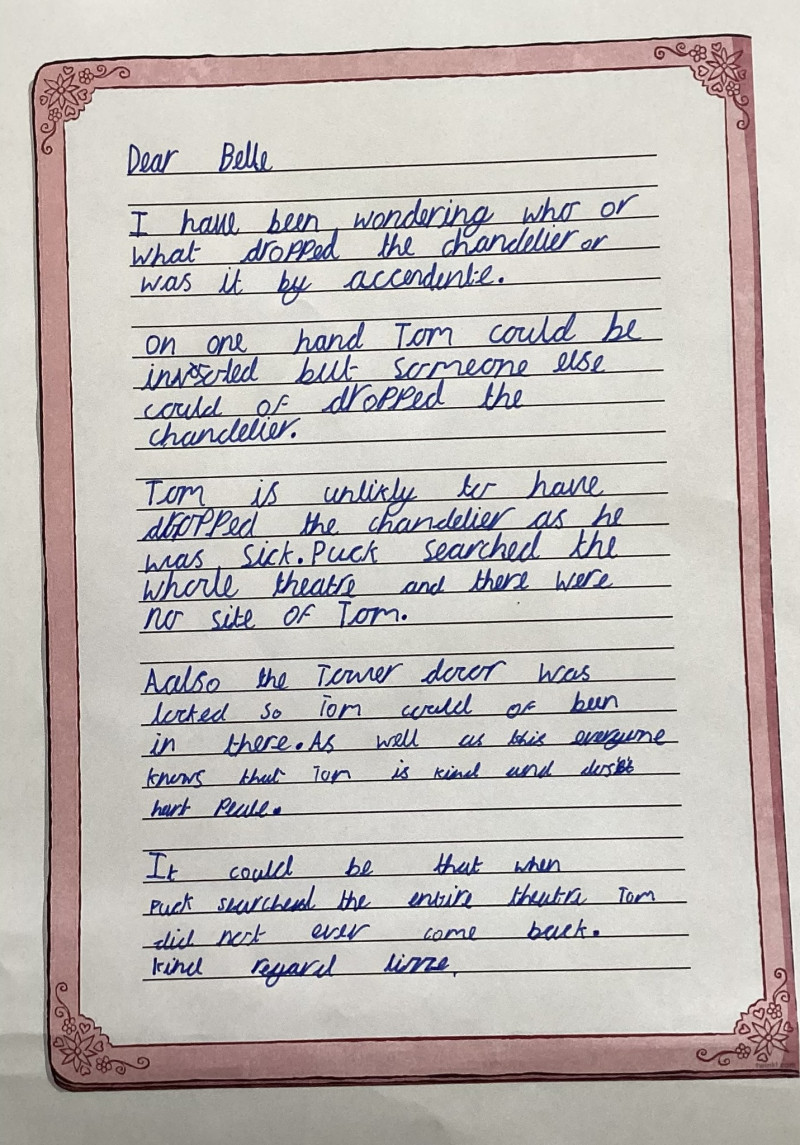 Dear Belle
I have been wondering who or
what dropped the chandelier or
was it by accendente.
on one hand Tom could be
but someone else
could of dropped the
chandelier.
Tom is unlikly to have
dropped the chandelier as he
was sick. Puck searched the
whole theatre and there were
no site of Tom.
Aalso the Tower door was
locked so Tom could of been
in there. As well as this everyone
knows that Tom is kind and
hart
It could be that when
Puck searched the entire theatre Tom
did not ever come back.
kind regard